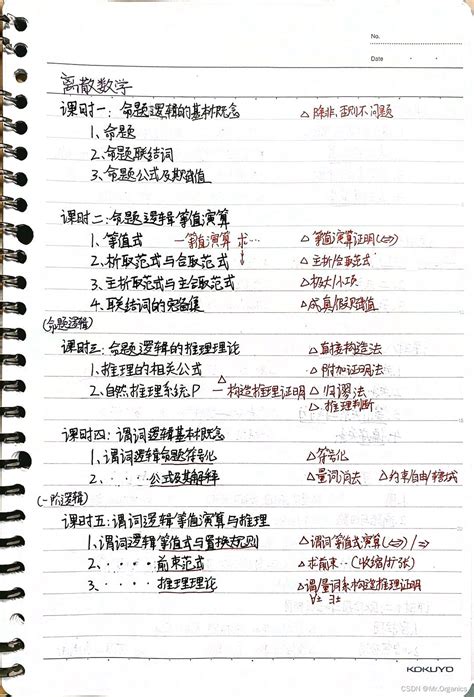 No.
Date
离散数学
课时一：命题逻辑的基本概念 △除非,否则不 问题
1、命题
2、命题联结词
3、命题公式及其赋值
课时二：命题逻辑等值演算
1、等值式 —等值演算 求… △等值演算证明(⇔)
2、析取范式与合取范式 ↓ △主析/合取范式
3、主析取范式与主合取范式 △极大/小项
4、联结词的完备集 △成真/假赋值
(命题逻辑)
课时三：命题逻辑的推理理论 △直接构造法
1、推理的相关公式 △附加证明法
2、自然推理系统P —构造推理证明 △归谬法
△推理判断
课时四：谓词逻辑基本概念
1、谓词逻辑命题符号化 △符号化
2、····公式及其解释 △量词消去 △约束/自由/
(一阶逻辑)
课时五：谓词逻辑等值演算与推理
1、谓词逻辑等值式与置换规则 △谓词等值式演算(⇔)/⇒
2、····前束范式 △求前束…(收缩/扩张)
3、····推理理论 △谓/量词系构造推理证明
∀± ∃±
KOKUYO
CSDN @Mr.Organica